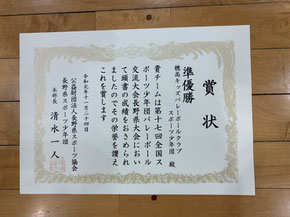 賞状
準優勝
穂高キッズバレーボールクラブ
スポーツ少年団 殿
貴チームは第十七回全国ス
ポーツ少年団バレーボール
交流大会長野県大会におい
て頭書の成績をおさめられ
ましたのでその栄誉を讃え
これを賞します
令和元年十一月二十四日
公益財団法人長野県スポーツ協会
長野県スポーツ少年団
本部長 清水一人